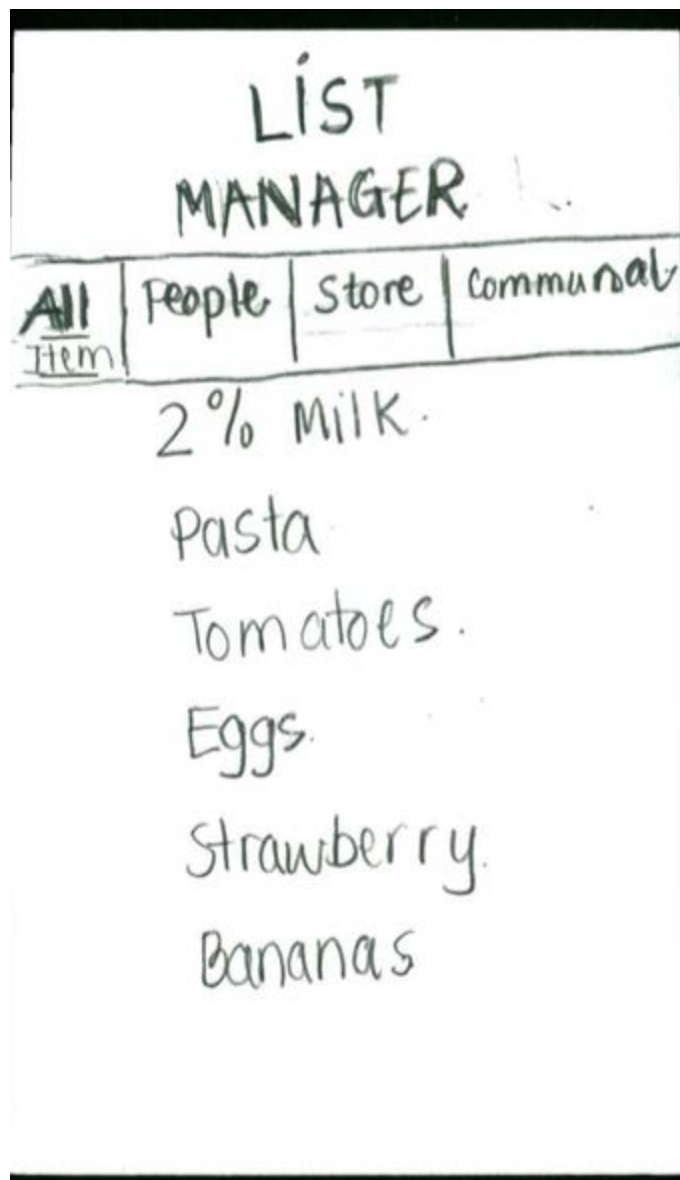 LIST
MANAGER
All People Store Communal
Item
2% Milk.
Pasta
Tomatoes.
Eggs.
Strawberry.
Bananas